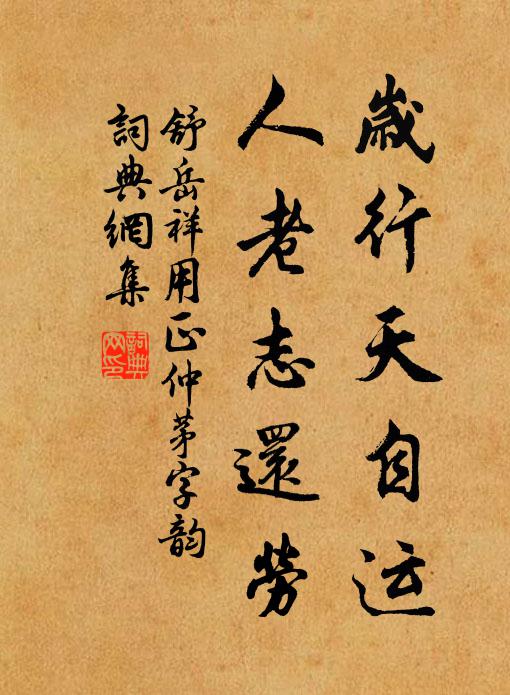 歲行天自运
人老志還勞
舒岳祥用正仲茅字韵
詞典網集
詞典网印